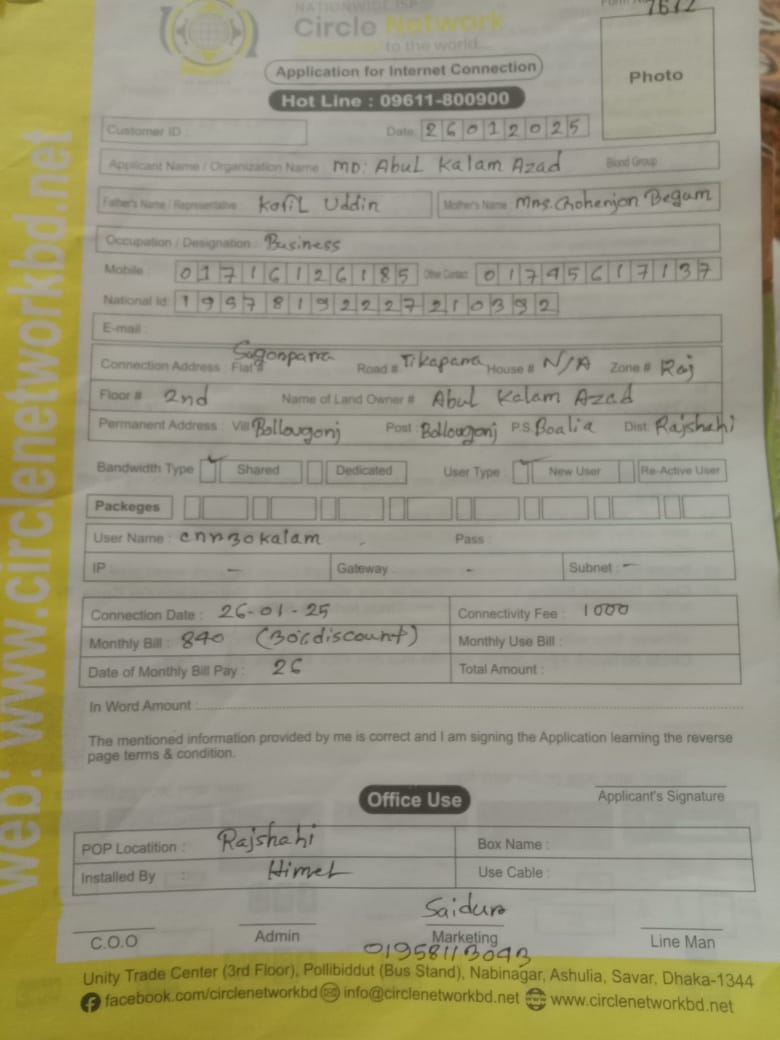 NATIONWIDE ISP
Circle Network
to the world...
Form No 7672
Application for Internet Connection
Hot Line : 09611-800900
Photo
Customer ID :
Date: 26012025
Applicant Name / Organization Name : MD: Abul Kalam Azad Blood Group :
Father's Name / Representative : Kofil Uddin Mother's Name : Begum
Occupation / Designation : Business
Mobile : 01716126185 Other Contact : 01745617137
National Id: 19978192227210392
E-mail :
Connection Address : Flat # Sagorpara Road # Tikapara House # N/A Zone # Raj
Floor # 2nd Name of Land Owner # Abul Kalam Azad
Permanent Address : Vill Bollougonj Post : Bollougonj P.S. Boalia Dist: Rajshahi
Bandwidth Type Shared Dedicated User Type : New User Re-Active User
Packeges
User Name : cnnbokalam Pass :
IP : - Gateway : - Subnet : -
Connection Date : 26-01-25 Connectivity Fee : 1000
Monthly Bill : 840 ( discount) Monthly Use Bill :
Date of Monthly Bill Pay : 26 Total Amount :
In Word Amount :
The mentioned information provided by me is correct and I am signing the Application learning the reverse
page terms & condition.
Applicant's Signature
Office Use
POP Locatition : Rajshahi Box Name :
Installed By : Himel Use Cable :
Saidur
C.O.O Admin Marketing Line Man
01958113043
Unity Trade Center (3rd Floor), Pollibiddut (Bus Stand), Nabinagar, Ashulia, Savar, Dhaka-1344
facebook.com/circlenetworkbd info@circlenetworkbd.net www.circlenetworkbd.net
web: www.circlenetworkbd.net